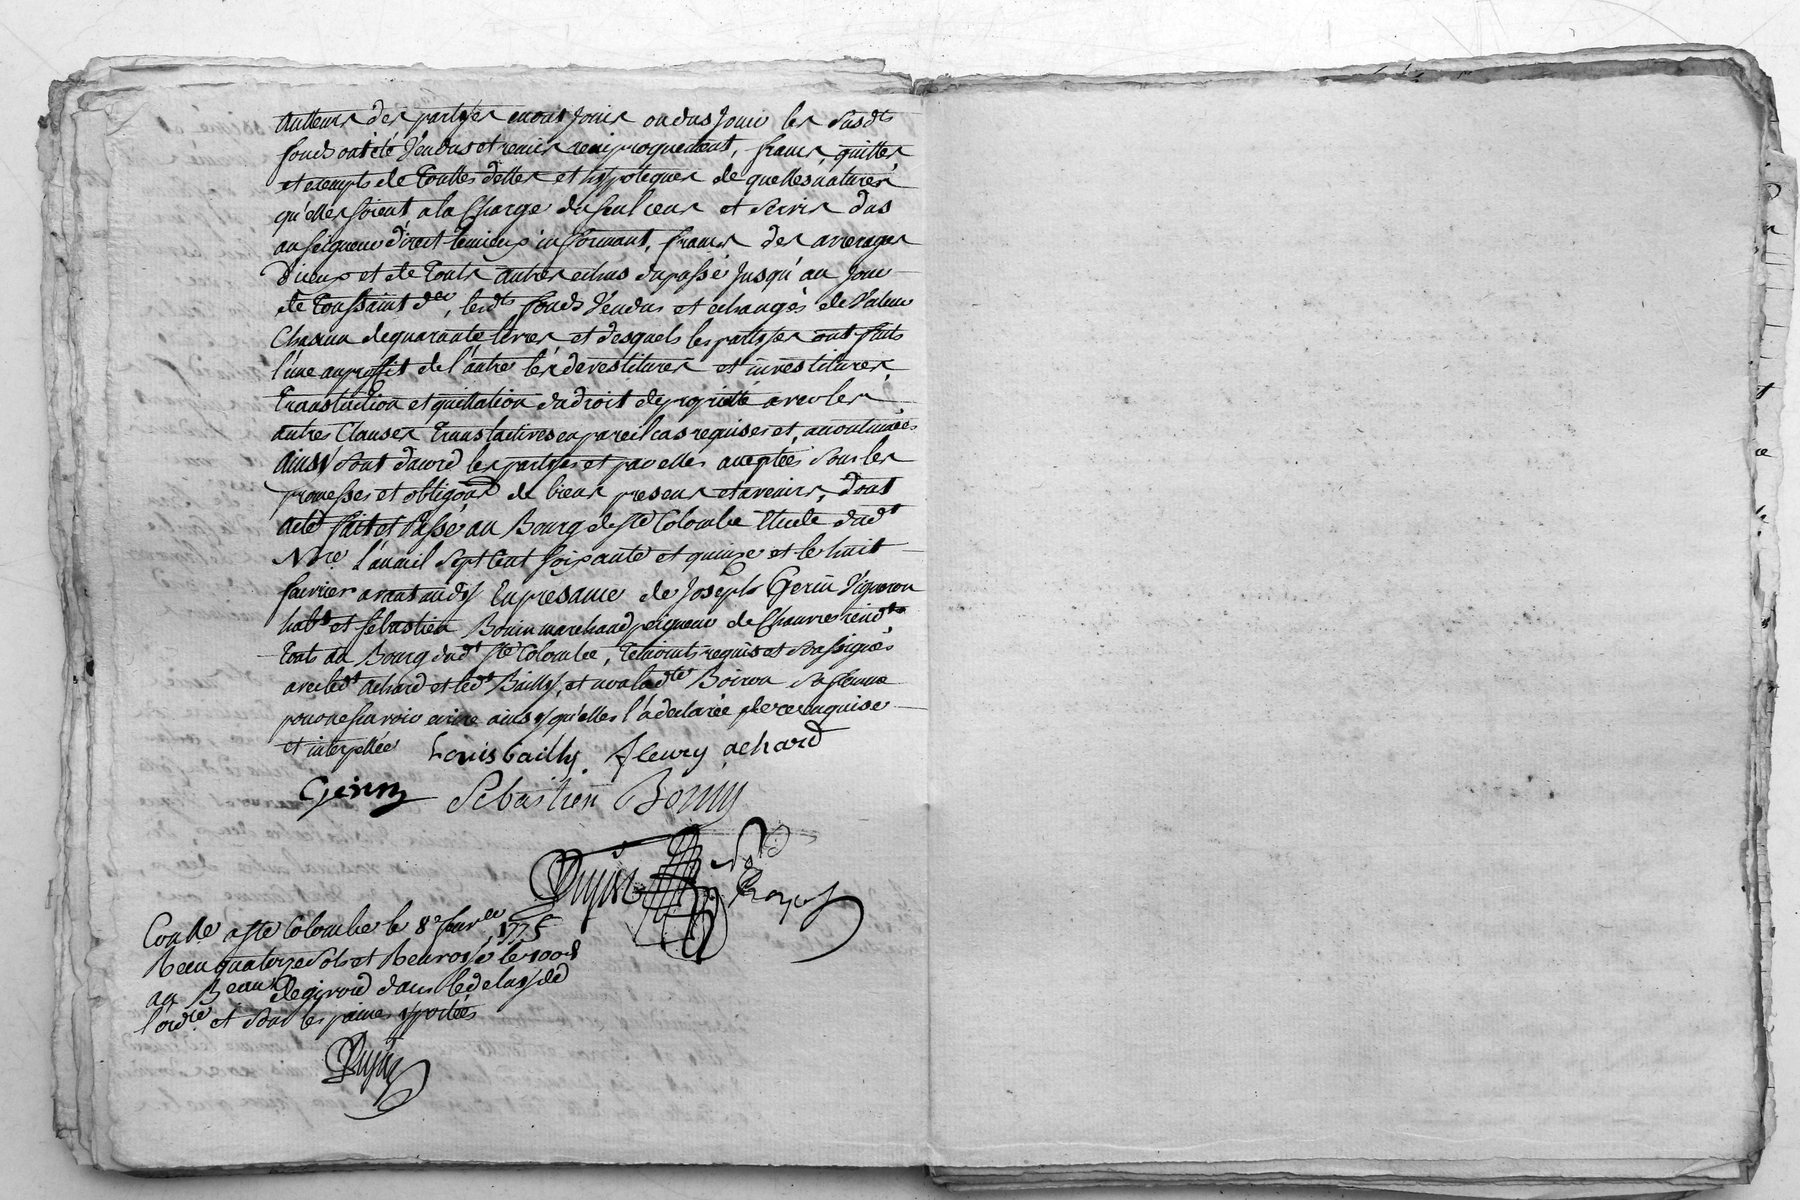 autheurs des partyes en ont jouis ou dus jouir les susdts
fonds ont été vendus et remis reciproquement, francs, quittes
et exempts de touttes dettes et hypoteques de quelles natures
qu'elles soient a la charge du seul cens et servis dus
au seigneur direct le mieux informant, francs des arrerages
d'iceux et de touts autres echus du passé jusqu'au jour
de toussaint der, lesdts fonds vendus et echangés de valeur
chacun de quarante livres et desquels les partyes ont faits
l'une au proffit de l'autre les devestitures et investitures,
translation et quittation du droit de proprieté avec les
autres clauses translatives en pareil cas requises et accoutumées
ainsy sont d'acord les partyes et par elles aceptées sous les
promesses et obligons de biens presens et avenirs, dont
acte fait et passé au Bourg de Ste Colombe etude dudt
Nre l'an mil sept cent soixante et quinze et le huit
fevrier avant midy en presance de Joseph Gerin vigneron
habt et Sebastien Bonin marchand peigneur de chanvre residts
touts du Bourg dudt Ste Colombe, temoints requis et soussignés
avec ledt achard et ledt Bailly, et non ladte Boiron sa femme
pour ne scavoir ecrire ainsy qu'elles l'a declarée de ce enquise
et interpellée Louis bailly fleury achard
Gerin Sebastien Bonin
Dupin
Conlle a Ste Colombe le 8e fevrier 1775
Reçu quatorze sols et
au Bureau
l'ordce et sous les peines y portées
Dupin